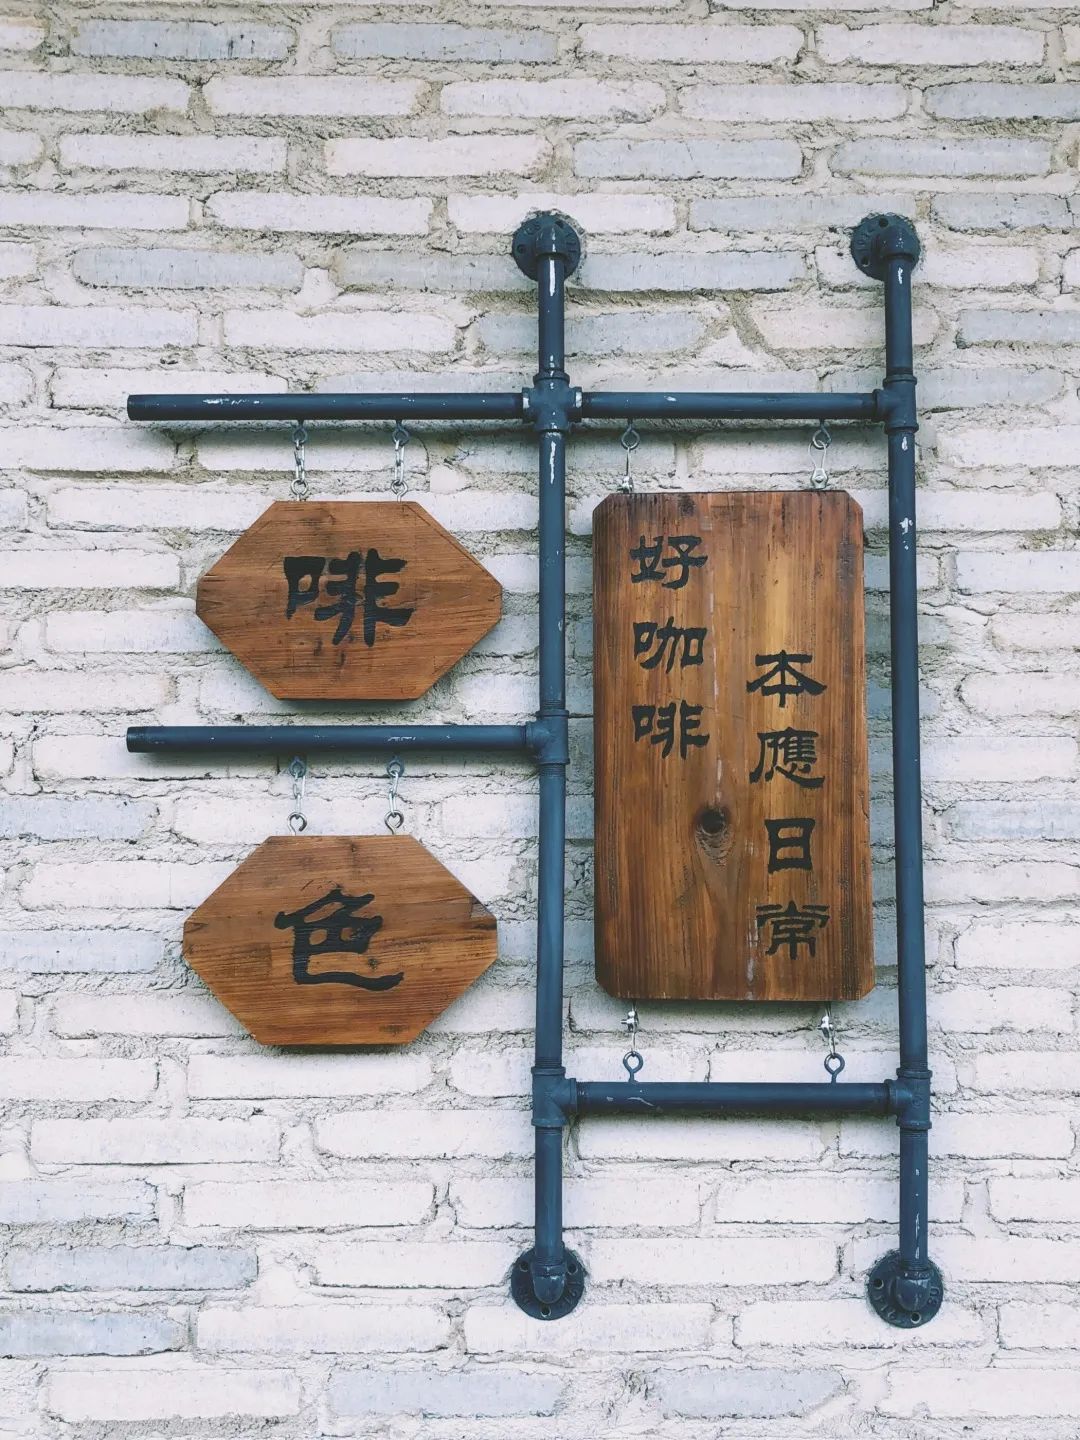 啡
色
好咖啡
本應日常